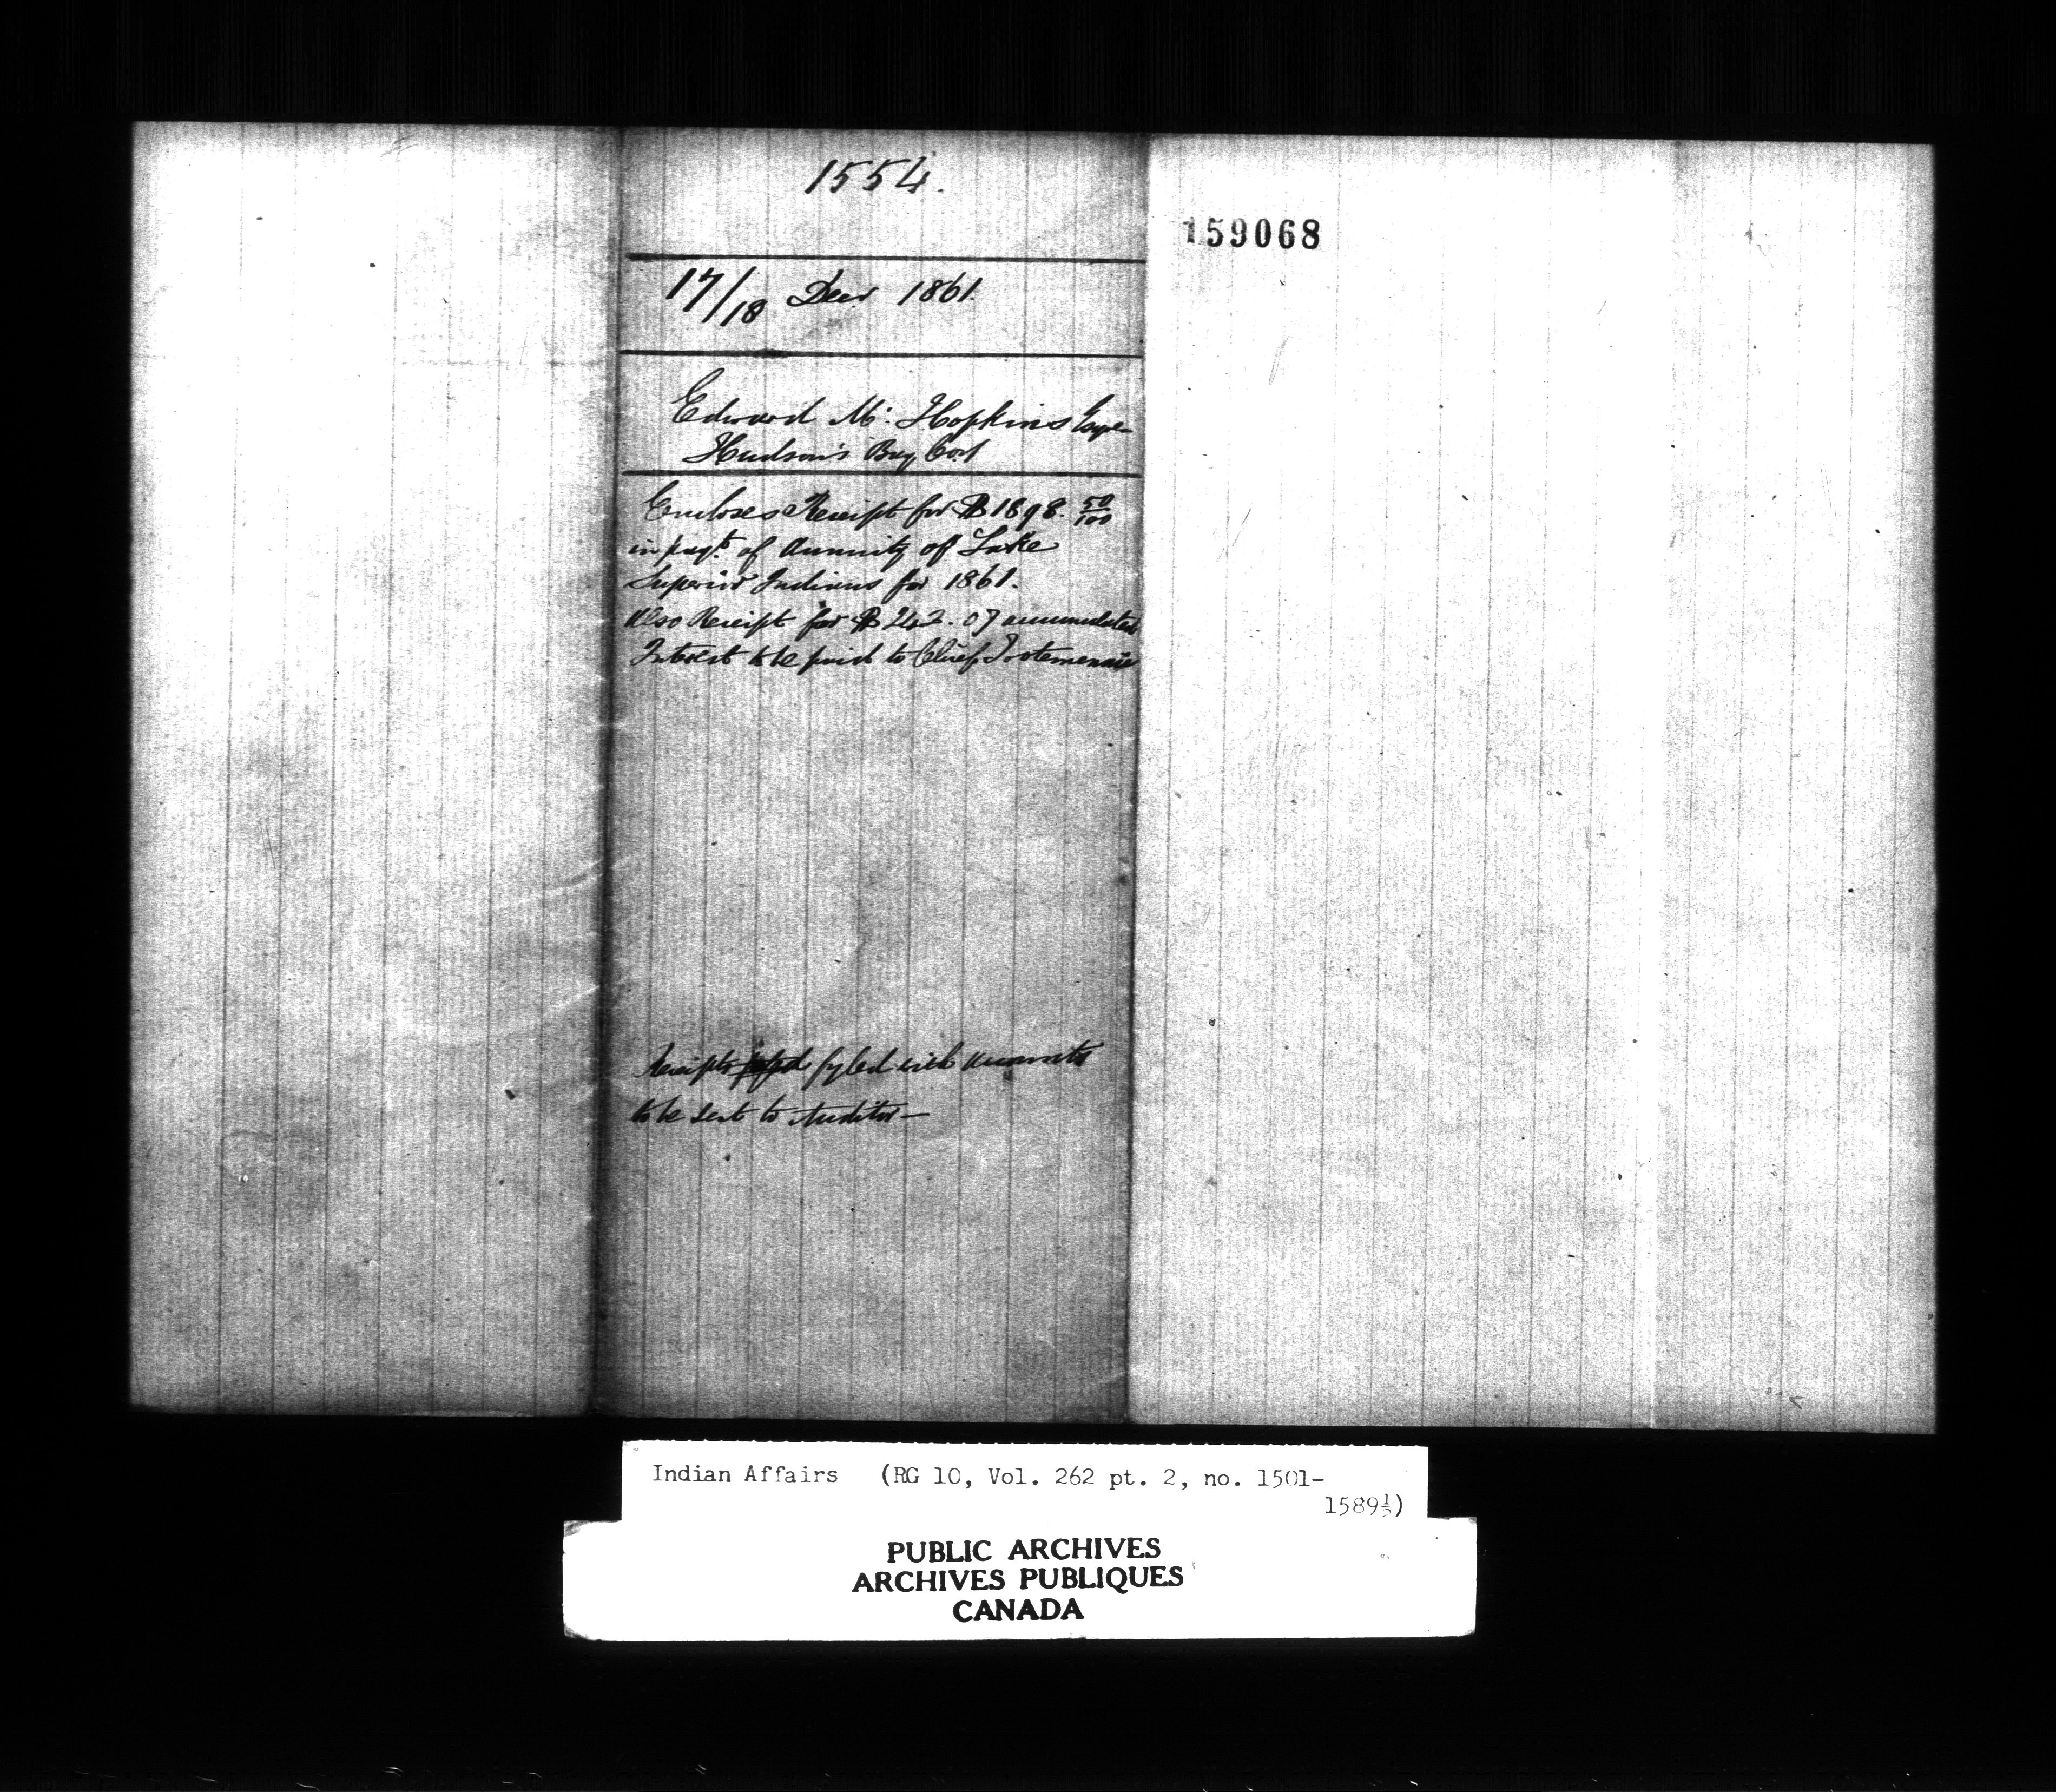 1554.
159068
17/18 Decr 1861.
Edward M. Hopkins Esqre
Hudson's Bay Co.
Encloses Receipt for $1898. 50/100
in payt. of Annuity of Lake
Superior Indians for 1861.
Also Receipt for $242. 07 accumulated
Interest to be paid to Chief
Receipts fyled with accounts
to be sent to Auditor—
Indian Affairs (RG 10, Vol. 262 pt. 2, no. 1501-
1589½)
PUBLIC ARCHIVES
ARCHIVES PUBLIQUES
CANADA